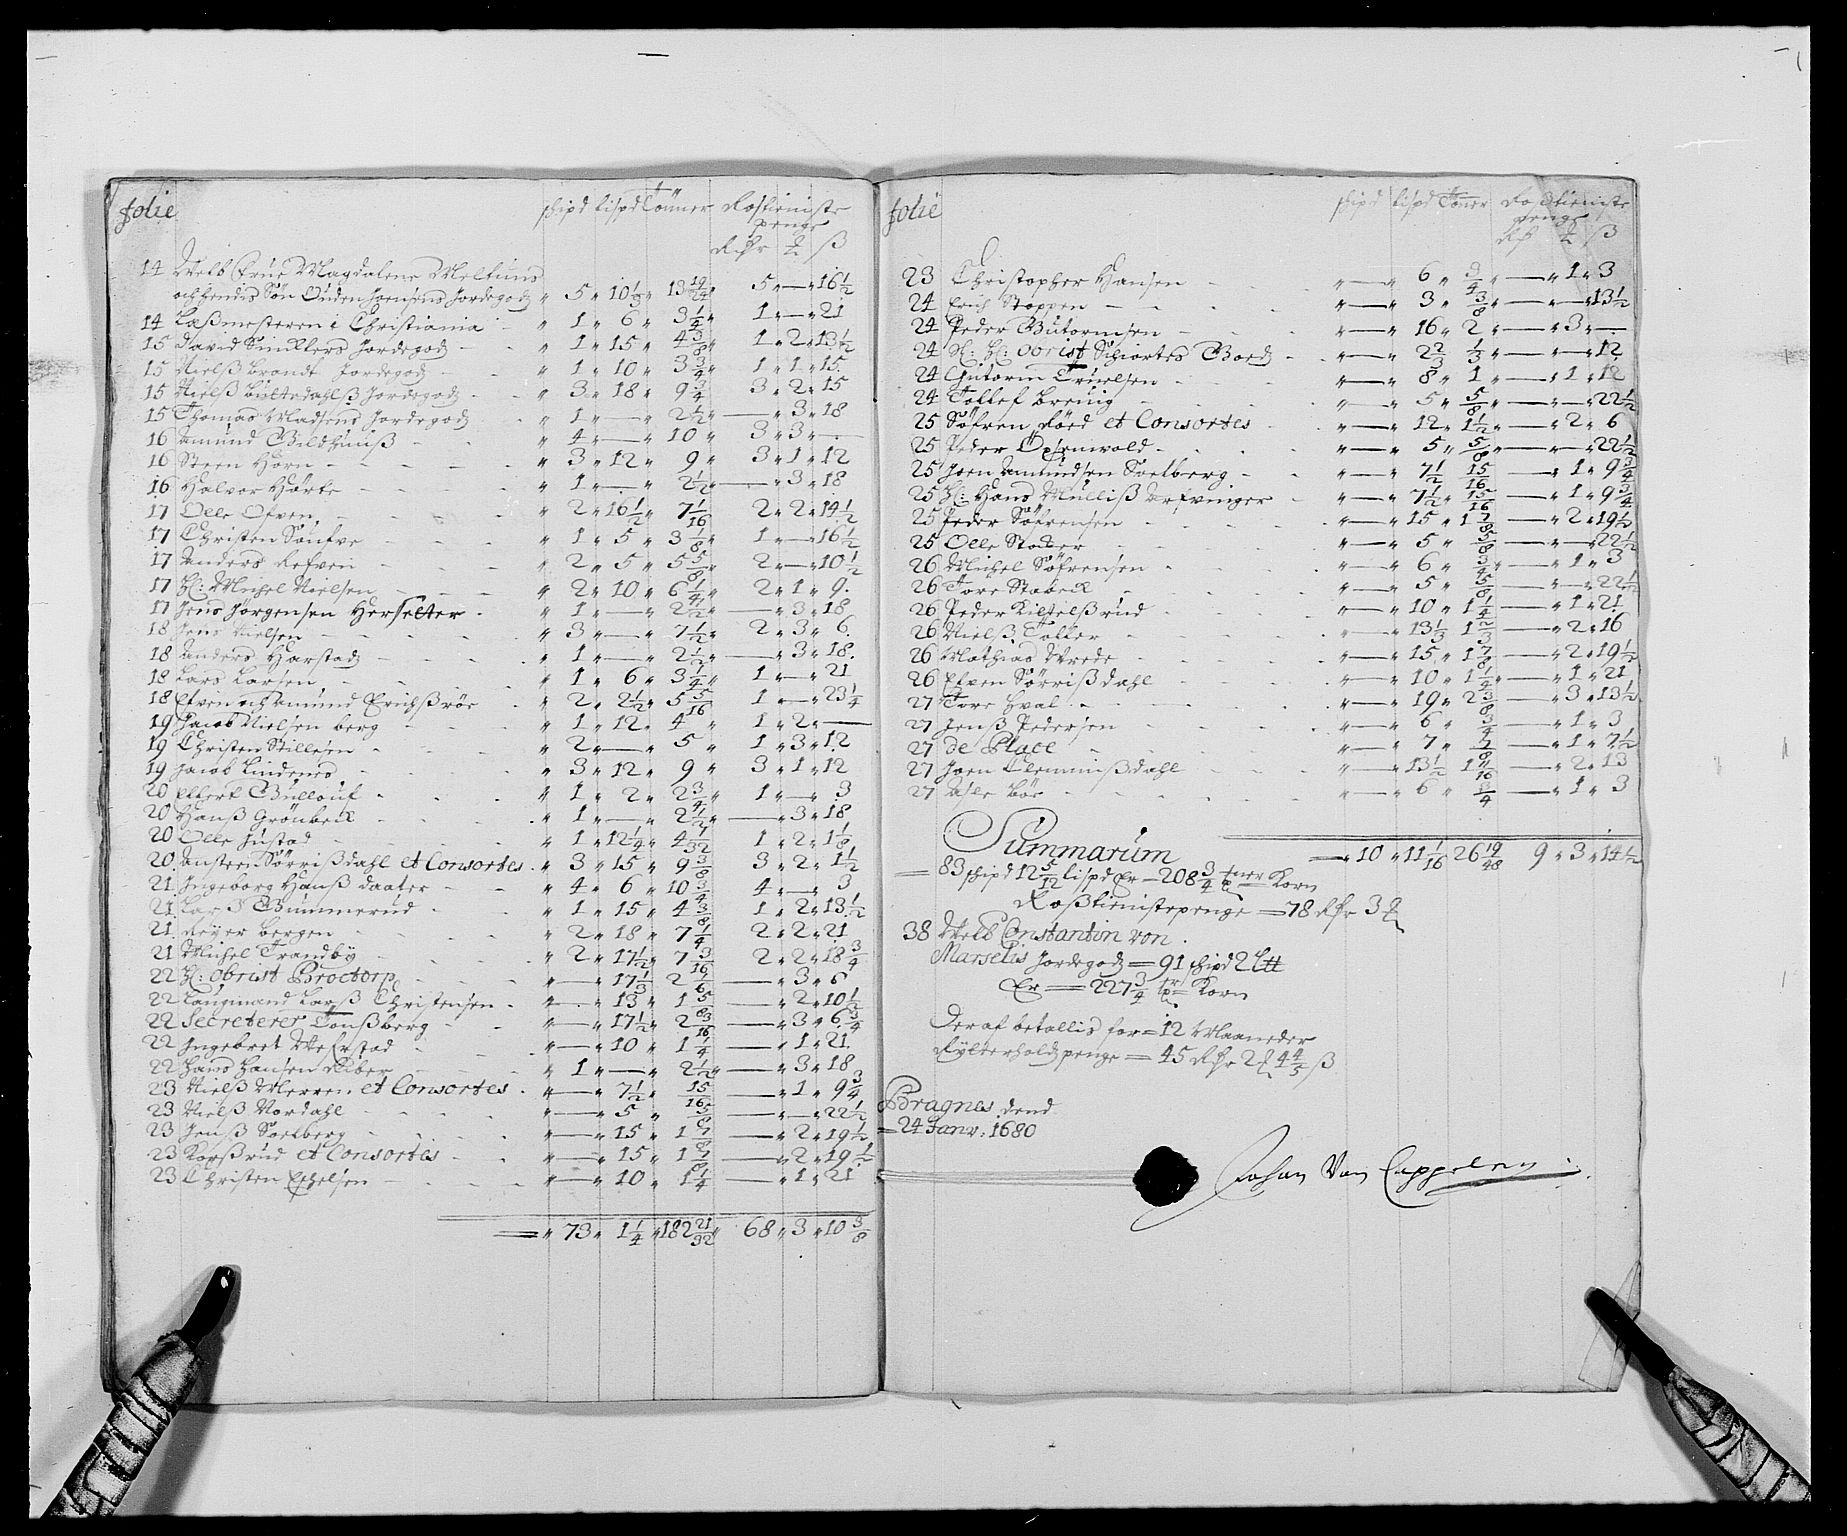 folie skipd lispd Tönner Rostieniste
penge
Rdr ß
14 Welb Frue Magdalene
och hendis Søn Ouden Joensens Jordegodz 5 10 1/3 13 19/24 5 — 16 1/2
14 i Christiania 1 6 3 1/4 1 — 21
15 David Sinklers Jordegodz 1 15 4 3/8 1 2 13 1/2
15 Nielß brandt Jordegodz 1 10 3 3/4 1 1 15
15 Nielß Jordegodz 3 18 9 3/4 3 2 15
15 Thomas Madsens Jordegodz 1 — 2 1/2 — 3 18
16 Amund 4 — 10 3 3 —
16 Steen Horn 3 12 9 3 1 12
16 Halvor 1 — 2 1/2 — 3 18
17 Olle Ofven 2 16 1/2 7 1/16 2 2 14 1/2
17 Christen 1 5 3 1/8 1 — 16 1/2
17 Anders Refven 2 5 5 5/8 2 — 10 1/2
17 Hr: Michel Nielsen 2 10 6 1/4 2 1 9
17 Jens Jørgensen Herseltter 1 — 2 1/2 — 3 18
18 Jens Nielsen 3 — 7 1/2 2 3 6
18 Anders Harstad 1 — 2 1/2 — 3 18
18 Lars Larsen 1 6 3 1/4 1 — 21
18 Efven och Amund Erichßröe 2 2 1/2 5 5/16 1 — 23 1/4
19 Jacob Nielsen berg 1 12 4 1 2 —
19 Christen Stillesen 2 — 5 1 3 12
19 Jacob Lindenes 3 12 9 3 1 12
20 1 2 2 3/4 1 — 3
20 Hanß Grönbeck 1 — 2 1/2 — 3 18
20 Olle Justad 1 12 1/4 4 1/32 1 2 1 1/8
20 Ansten Sörrißdahl et Consortes 3 15 9 3/8 3 2 1 1/2
21 Ingeborg Hanß daater 4 6 10 3/4 4 — 3
21 Larß Gummerud 1 15 4 3/8 1 2 13 1/2
21 Reyer bergen 2 18 7 1/4 2 2 21
21 Michel Trandby 2 17 1/2 7 3/16 2 2 18 3/4
22 Hr: Obrist Broctorp — 17 1/3 2 1/6 — 3 6
22 Laugmand Larß Christensen — 13 1 5/8 — 2 10 1/2
22 Secreterer Tonßberg — 17 1/2 2 3/16 — 3 6 3/4
22 Ingebret — 10 1 1/4 — 1 21
22 Hans Hansen Riber 1 — 2 1/2 — 3 18
23 Nielß Merren et Consortes — 7 1/2 15/16 — 1 9 3/4
23 Nielß Nordahl — 5 5/8 — — 22 1/2
23 Jenß Soelberg — 15 1 7/8 — 2 19 1/2
23 Korßrud et Consortes — 15 1 7/8 — 2 19 1/2
23 Christen — 10 1 1/4 — 1 21
73 1 1/4 182 21/32 68 3 10 3/8
folie skipd lispd Töner Roßtieniste
penge
Rdr ß
23 Christopher Hansen — 6 3/4 — 1 3
24 Erich Stoppen — 3 3/8 — — 13 1/2
24 Peder Gutormsen — 16 2 — 3 —
24 Sl: Hr: Obrist — 2 2/3 1/3 — — 12
24 Gutorm Truelsen — 8 1 — 1 12
24 Tollef — 5 5/8 — — 22 1/2
25 Söfren et Consortes — 12 1 1/2 — 2 6
25 Peder — 5 5/8 — — 22 1/2
25 Joen Amundsen Soelberg — 7 1/2 15/16 — 1 9 3/4
25 Hr: Hans arfvinger — 7 1/2 15/16 — 1 9 3/4
25 Peder Söfrensen — 15 1 7/8 — 2 19 1/2
25 Olle — 5 5/8 — — 22 1/2
26 Michel Söfrensen — 6 3/4 — 1 3
26 Tore Stabeck — 5 5/8 — — 22 1/2
26 Peder Kieltelßrud — 10 1 1/4 — 1 21
26 Nielß Toller — 13 1/3 1 2/3 — 2 16
26 Mathias Wrede — 15 1 7/8 — 2 19 1/2
26 Efven Sörrißdahl — 10 1 1/4 — 1 21
27 Tore Hval — 19 2 3/8 — 3 13 1/2
27 Jenß Pedersen — 6 3/4 — 1 3
27 de Place — 7 7/8 — 1 7 1/2
27 Joen Clemmißdahl — 13 1/2 1 11/16 — 2 13
27 Asle — 6 3/4 — 1 3
Summarum — 10 11 1/16 26 19/48 9 3 14 1/2
83 skipd 12 5/12 lispd Er 208 3/4 tner Korn
Roßtienistepenge 78 Rdr 3
38 Welb Constantin von
Marselis Jordegodz 91 skipd 2 Ltt
Er 227 3/4 Korn
Deraf betallis for 12 Maaneder
Rytterholdz penge 45 Rdr 2 4 4/5 ß
Bragnes dend
24 Janv: 1680
Johan Von Cappelen